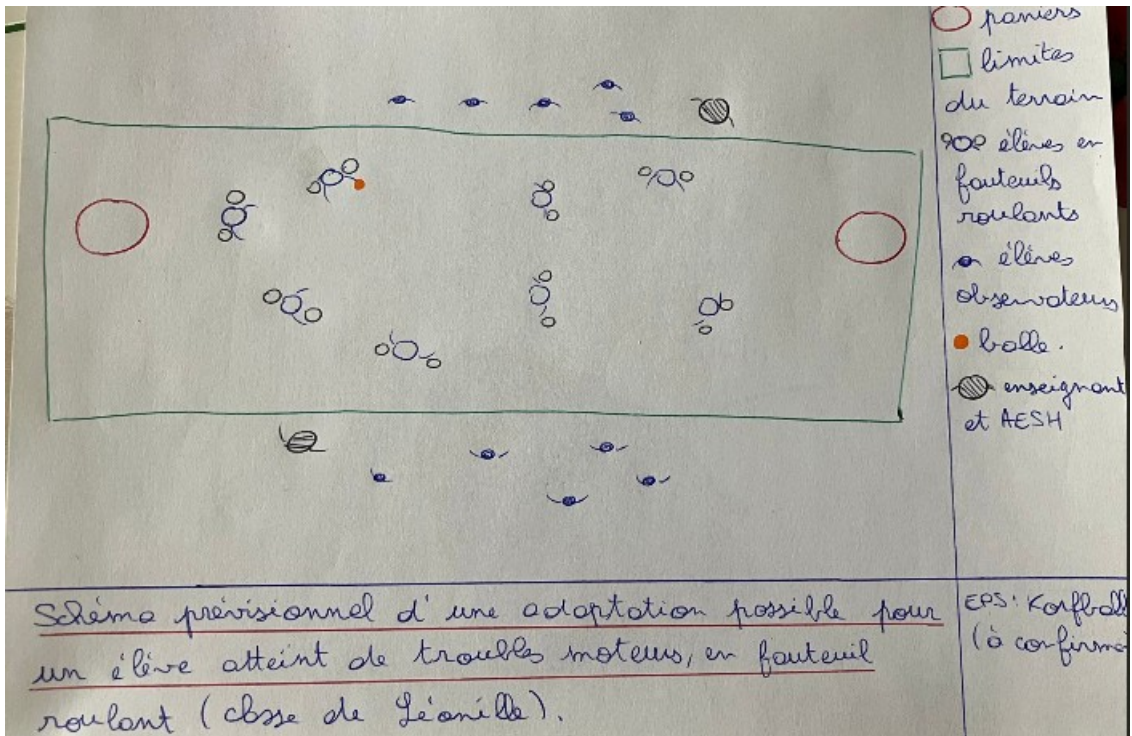 paniers
limites
du terrain
élèves en
fauteuils
roulants
élèves
observateurs
balle.
enseignant
et AESH
Schéma prévisionnel d'une adaptation possible pour
un élève atteint de troubles moteurs, en fauteuil
roulant (classe de Léanille).
EPS: Korfball
(à confirme